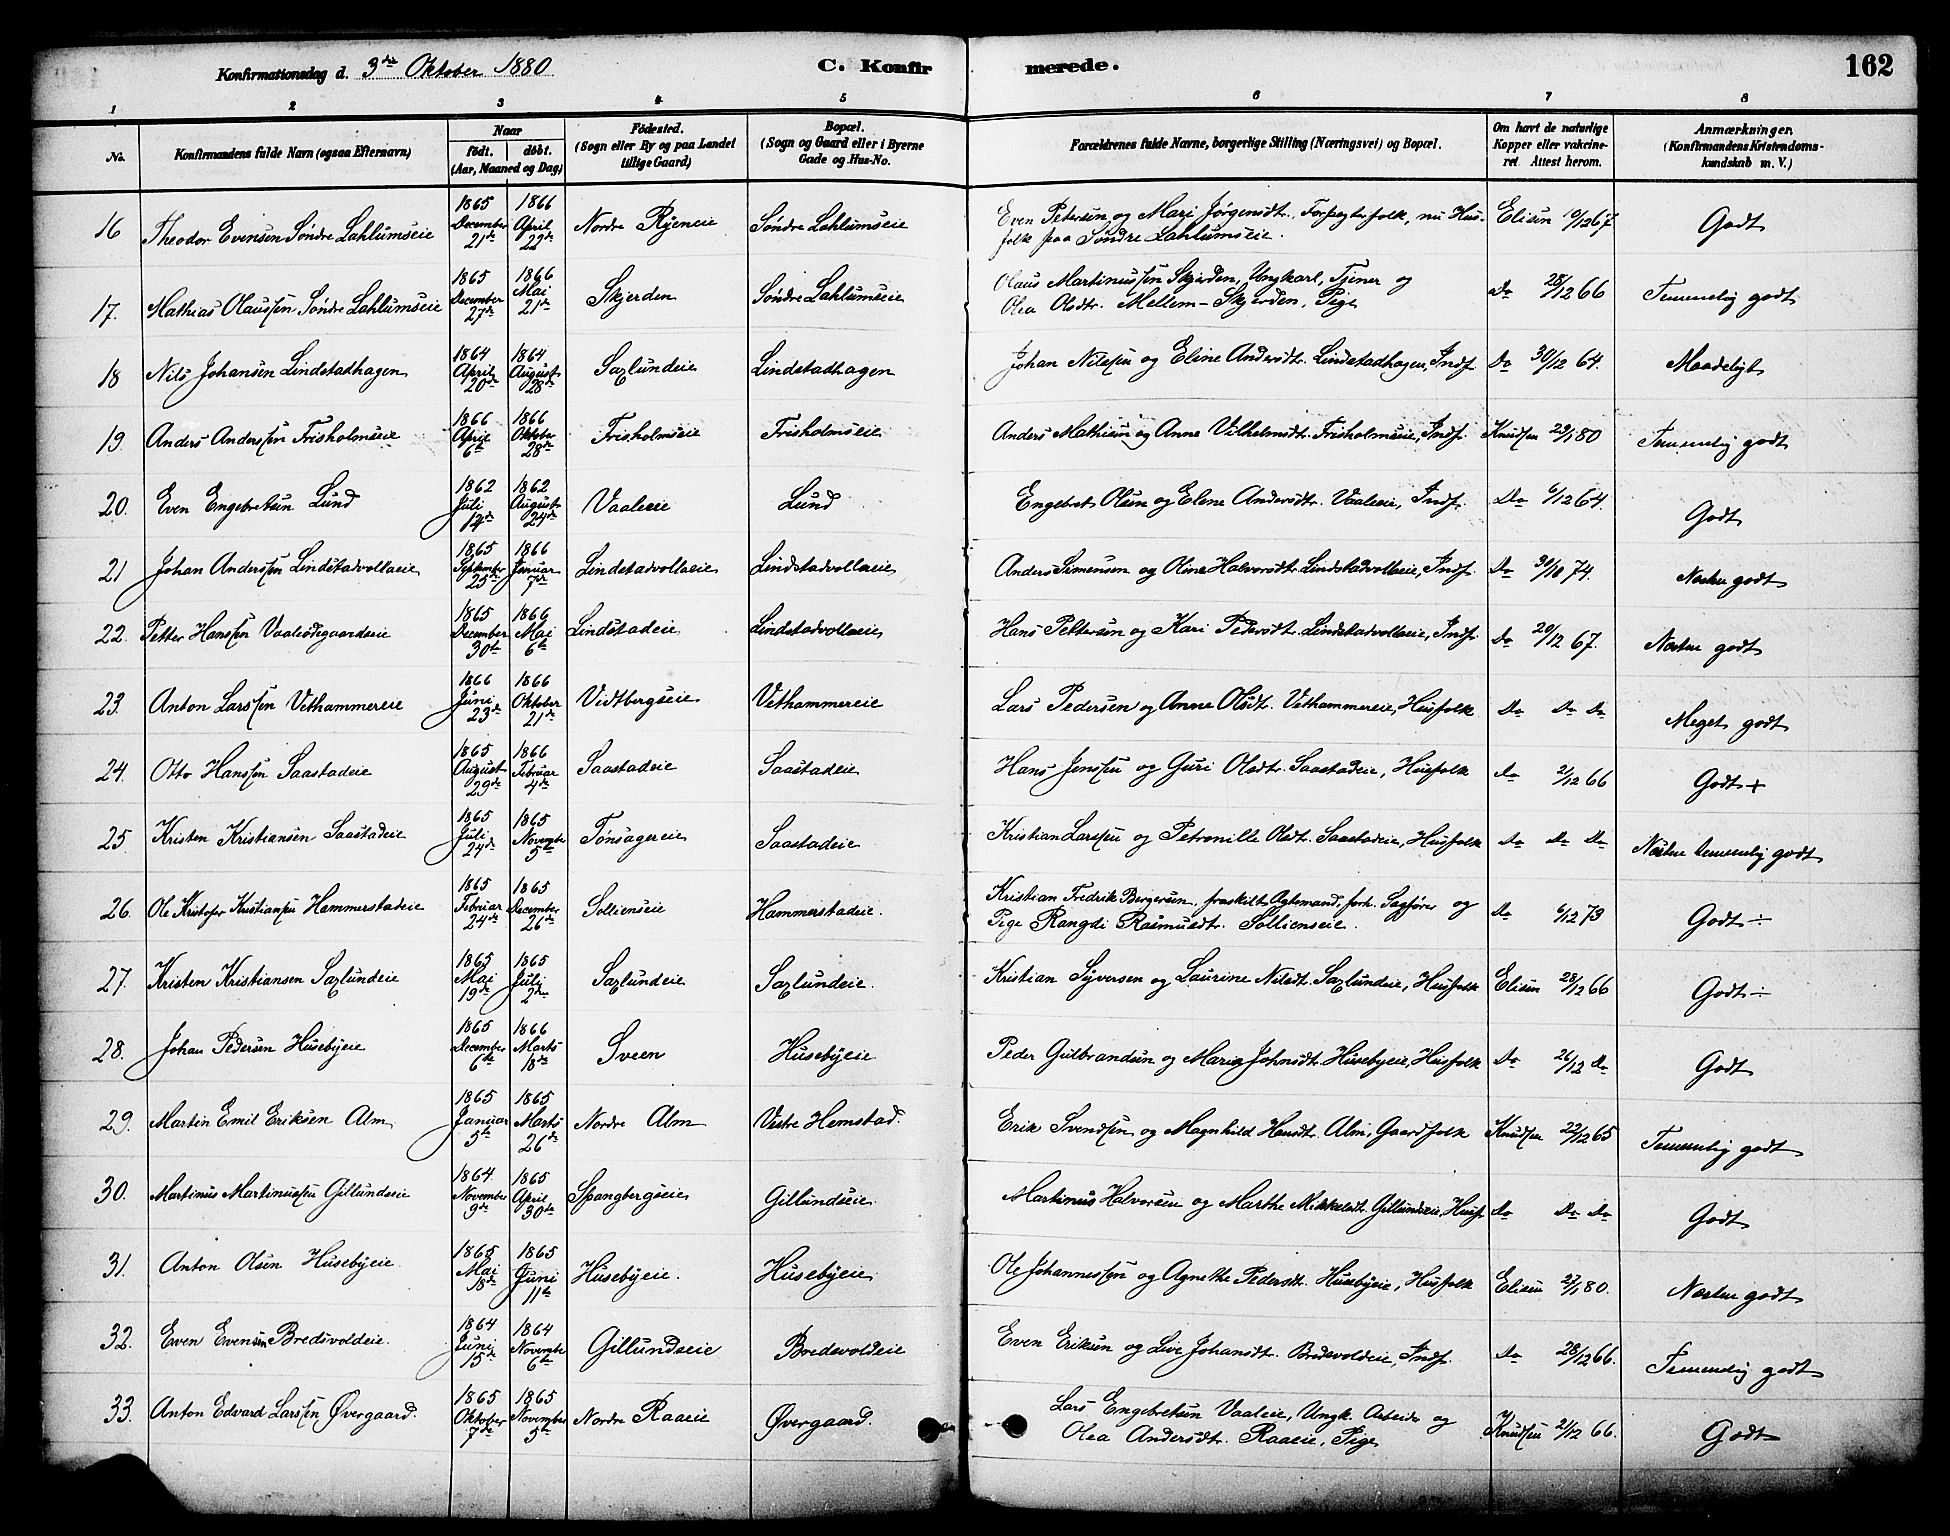 Konfirmationsdag d. 3die Oktober 1880 C. Konfirmerede. 162
1 2 3 4 5 6 7 8
No. Konfirmandens fulde Navn (ogsaa Efternavn) Naar født. døbt. (Aar, Maaned og Dag) Fødested. (Sogn eller By og paa Landet tillige Gaard) Bopæl. (Sogn og Gaard eller i Byerne Gade og Hus-No. Forældrenes fulde Navne, borgerlige Stilling (Næringsvei) og Bopæl. Om havt de naturlige Kopper eller vakcineret. Attest herom. Anmærkninger. (Konfirmandens Kristendomskundskab m. V.)
16 Theodor Evensen Søndre Lahlumseie 1865 December 21de 1866 April 22de Nordre Ryeneie Søndre Lahlumseie Even Petersen og Mari Jørgensdt. Forpagterfolk, nu Husfolk paa Søndre Lahlumseie. Elisen 10/12 67 Godt
17. Mathias Olaussen Søndre Lahlumseie 1865 December 27de 1866 Mai 21de Skjerden Søndre Lahlumseie Olaus Martinussen Skjerden, Ungkarl, Tjener og Olea Olsdt. Mellem-Skjerden, Pige Do 28/12 66 Temmelig godt
18 Nils Johansen Lindstadhagen 1864 April 20de 1864 August 28de Saxlundeie Lindstadhagen Johan Nilssen og Eline Andersdt. Lindstadhagen, Indf. Do 30/12 64. Maadeligt
19. Anders Anderssen Frisholmseie 1866 April 6te 1866 Oktober 28de Frisholmseie Frisholmseie Anders Mathisen og Anne Vilhelmsdt. Frisholmseie, Indf. Knudsen 29/1 80 Temmelig godt
20. Even Engebretsen Lund 1862 Juli 12de 1862 August 24de Vaaleeie Lund Engebret Olsen og Elene Andersdt. Vaaleeie, Indf. Do 6/12 64. Godt
21 Johan Anderssen Lindstadvollaeie 1865 September 25de 1866 Januar 7de Lindstadvollaeie Lindstadvollaeie Anders Simensen og Oline Halvorsdt. Lindstadvollaeie, Indf. Do 30/10 74. Næsten godt
22. Petter Hanssen Vaaleødegaardseie 1865 December 30te 1866 Mai 6te Lindstadeie Lindstadvollaeie Hans Pettersen og Kari Pedersdt. Lindstadvollaeie, Indf. Do 20/12 67. Næsten godt
23. Anton Larssen Vethammereie 1866 Juni 23de 1866 Oktober 21de Vidtbergseie Vethammereie Lars Pedersen og Anne Olsdt. Vethammereie, Husfolk Do Do Do Meget godt
24. Otto Hanssen Saastadeie 1865 August 29de 1866 Februar 4de Saastadeie Saastadeie Hans Jenssen og Guri Olsdt. Saastadeie, Husfolk Do 2/12 66 Godt +
25. Kristen Kristiansen Saastadeie 1865 Juli 24de 1865 November 5te Tønsagereie Saastadeie Kristian Larssen og Petronille Olsdt. Saastadeie, Husfolk Do Do Do Næsten temmelig godt
26. Ole Kristofer Kristiansen Hammerstadeie 1865 Februar 24de 1865 December 26de Sollienseie Hammerstadeie. Kristian Fredrik Bergersen, fraskilt Ægtemand, forh. Sagfører og Pige Rangdi Rasmusdt. Sollienseie. Do 6/12 73 Godt ÷
27. Kristen Kristiansen Saxlundeie 1865 Mai 19de 1865 Juli 2den Saxlundeie Saxlundeie. Kristian Syversen og Laurine Nilsdt. Saxlundeie, Husfolk Elisen 28/12 66 Godt ÷
28. Johan Pedersen Husebyeie 1865 December 6te 1866 Marts 18de Sveen Husebyeie Peder Gulbrandsen og Maria Johnsdt. Husebyeie, Husfolk Do 26/12 Do Godt
29. Martin Emil Eriksen Alm 1865 Januar 5te 1865 Marts 26de Nordre Alm Vestre Hemstad. Erik Svendsen og Magnhild Hansdt. Alm, Gaardfolk Knudsen 22/12 65 Temmelig godt
30. Martinus Martinussen Gillundseie 1864. November 9de 1865 April 30te Spangbergseie Gillundseie Martinus Halvorsen og Marthe Mikkelsdt. Gillundseie, Husf. Do Do Do Godt
31. Anton Olsen Husebyeie. 1865 Mai 18de 1865 Juni 11te Husebyeie. Husebyeie Ole Johannessen og Agnethe Pedersdt. Husebyeie, Husfolk Elisen 27/1 80. Næsten godt
32. Even Evensen Bredsvoldeie. 1864 Juni 15de 1864 November 6te Gillundseie Bredsvoldeie Even Eriksen og Live Johansdt. Bredsvoldeie, Indf. Do 28/12 66. Temmelig godt
33. Anton Edvard Larssen Øvergaard. 1865 Oktober 7de 1865 November 5te Nordre Raaeie Øvergaard. Lars Engebretsen Vaaleie, Ungk. Arbeider og Olea Andersdt. Raaeie, Pige Knudsen 21/12 66. Godt